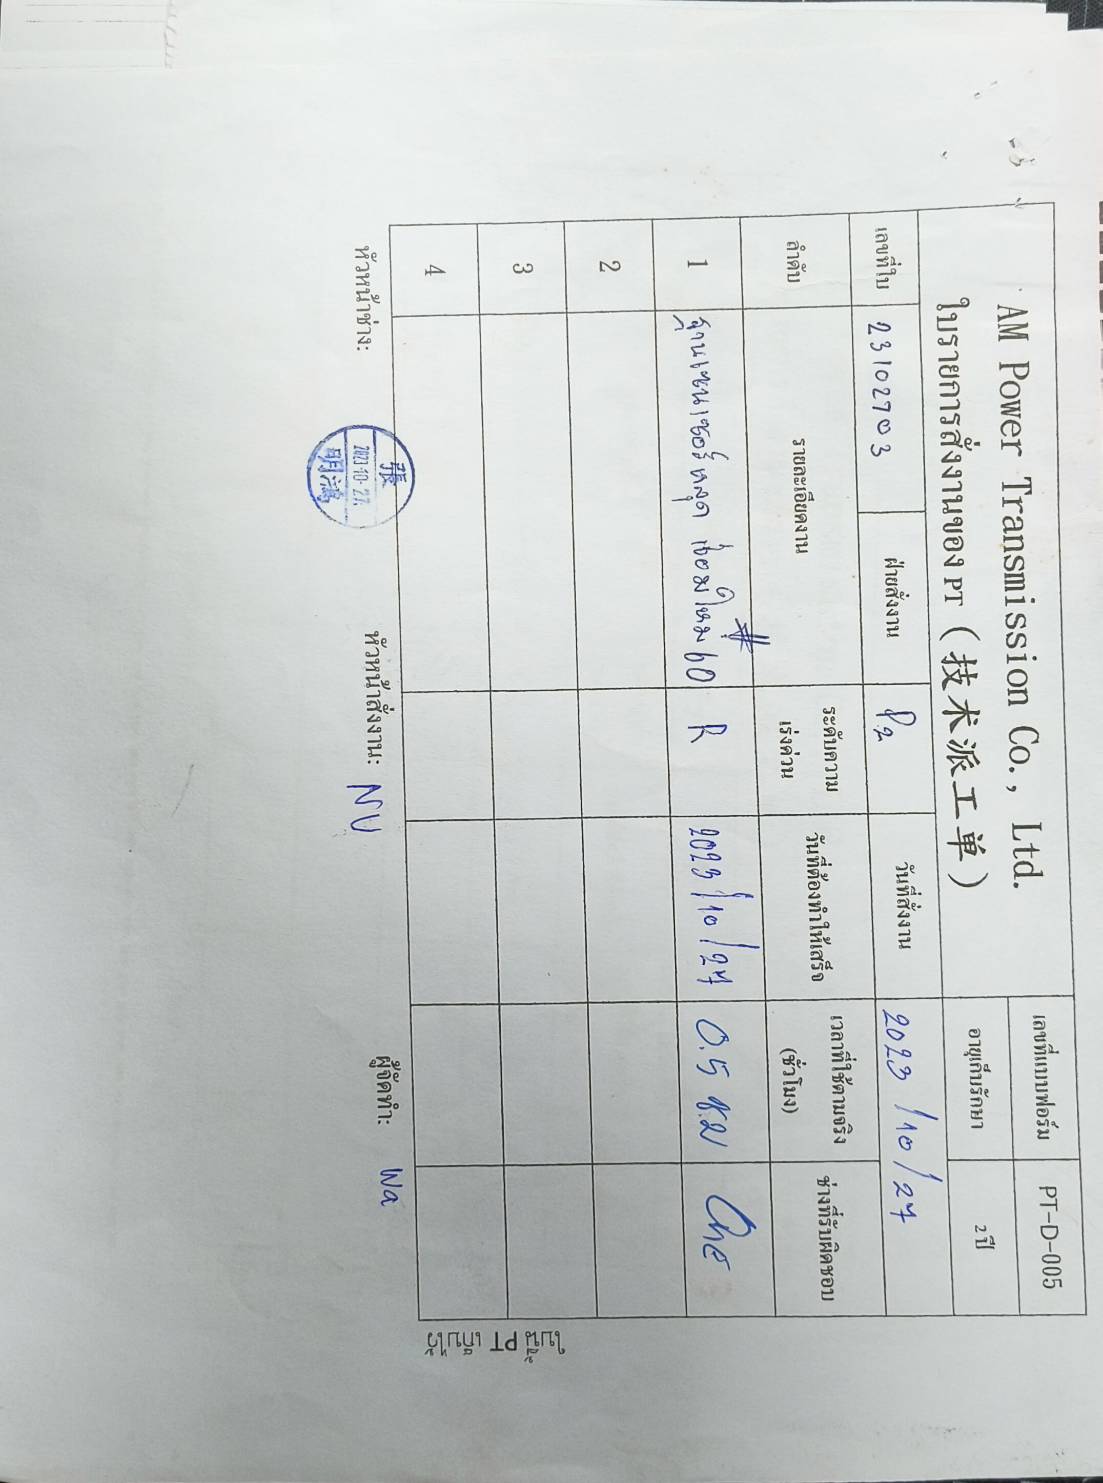 AM Power Transmission Co., Ltd.
ใบรายการสั่งงานของ PT (技术派工单)
เลขที่แบบฟอร์ม PT-D-005
อายุเก็บรักษา 2 ปี
เลขที่ใบ 23102703 ฝ่ายสั่งงาน P2 วันที่สั่งงาน 2023/10/27
ลำดับ รายละเอียดงาน ระดับความเร่งด่วน วันที่ต้องทำให้เสร็จ เวลาที่ใช้ตามจริง (ชั่วโมง) ช่างที่รับผิดชอบ
1 ฐานเซนเซอร์หลุด เชื่อมใหม่ #60 R 2023/10/27 0.5 ช.ม One
2
3
4
หัวหน้าช่าง: 張 2023-10-27 明鴻 หัวหน้าสั่งงาน: NU ผู้จัดทำ: Wa
ใบนี้ PT เก็บไว้